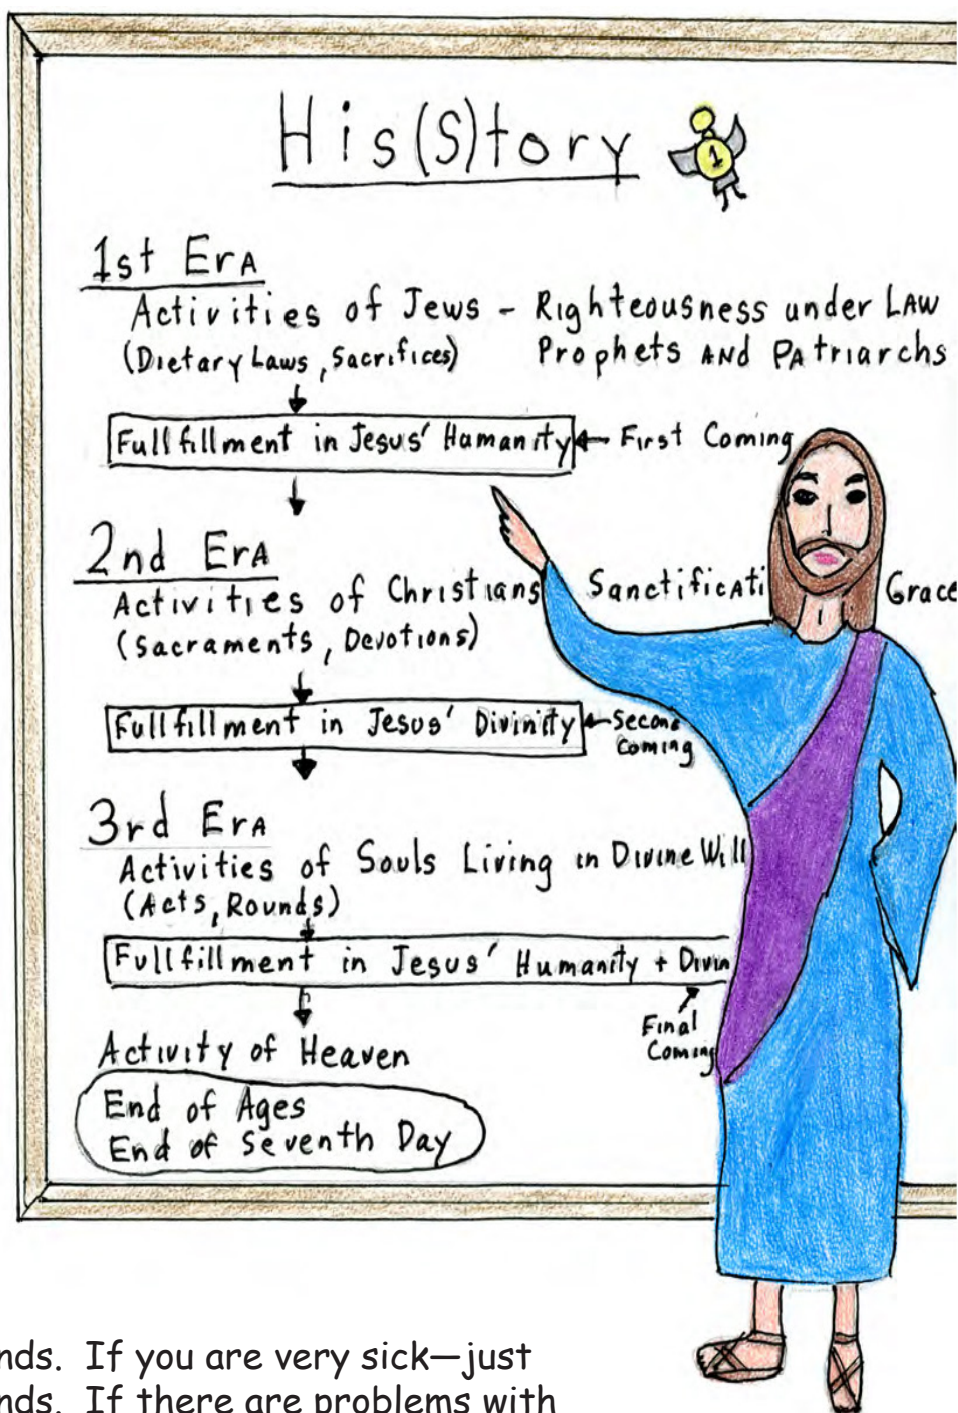 His(S)tory
1
1st Era
Activities of Jews - Righteousness under Law
(Dietary Laws, Sacrifices) Prophets and Patriarchs
Fullfillment in Jesus' Humanity First Coming
2nd Era
Activities of Christians Sanctificati Grace
(Sacraments, Devotions)
Fullfillment in Jesus' Divinity Secon
Coming
3rd Era
Activities of Souls Living in Divine Will
(Acts, Rounds)
Fullfillment in Jesus' Humanity + Divin
Final
Coming
Activity of Heaven
End of Ages
End of Seventh Day
nds. If you are very sick—just
nds. If there are problems with